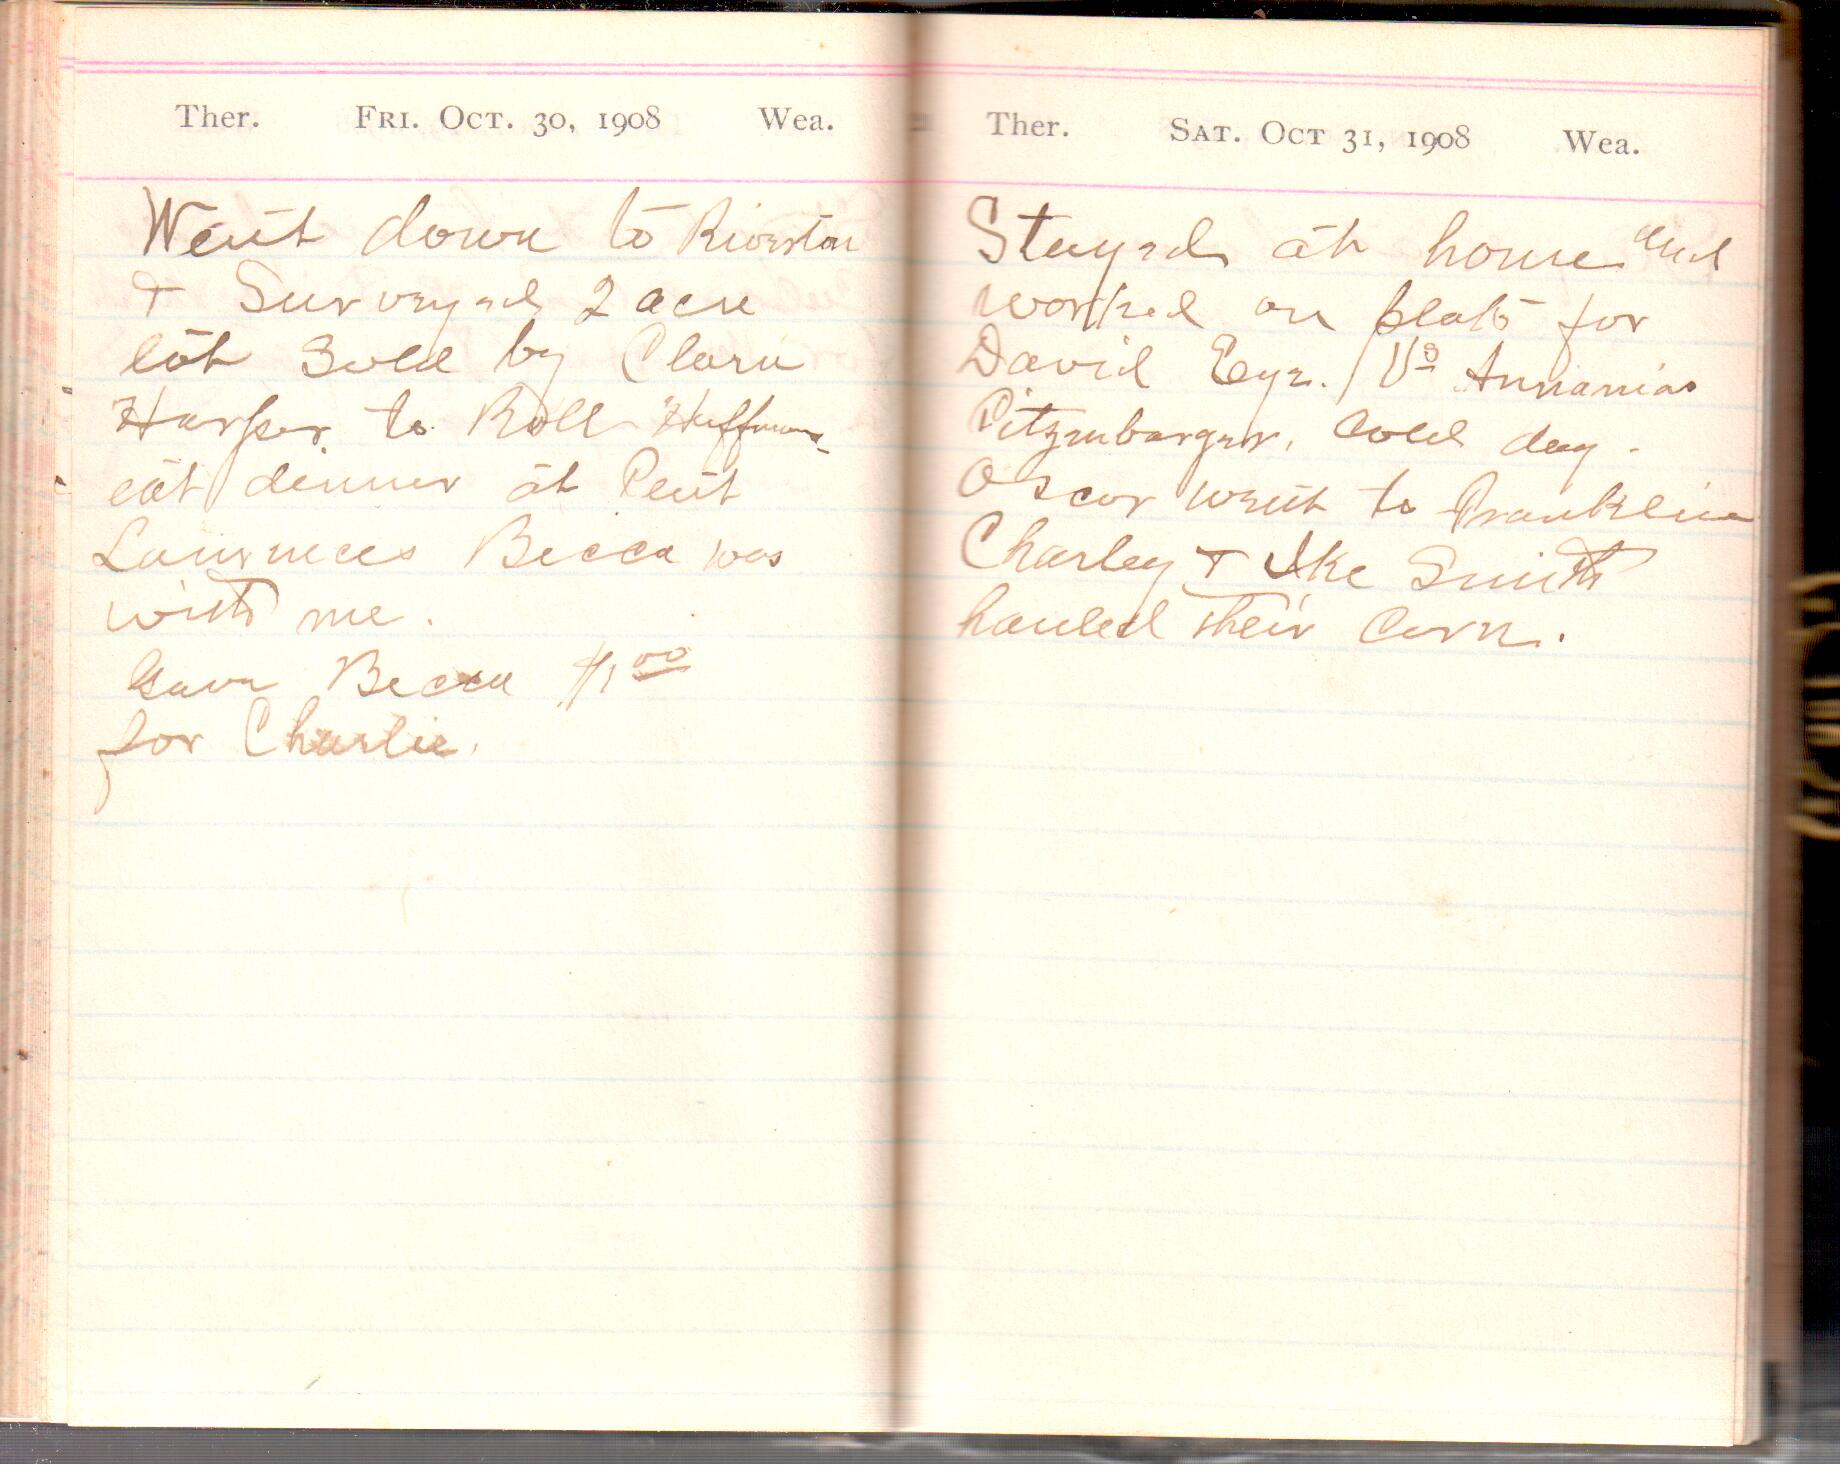 Ther. FRI. OCT. 30, 1908 Wea.
Went down to Riverton
& Surveyed 2 acre
lot sold by Clara
Harper to Roll Huffman
eat dinner at Pent
Lawrnces Becca was
with me.
Gave Becca $1 00
for Charlie.
Ther. SAT. OCT 31, 1908 Wea.
Stayed at home and
worked on plats for
David Eye. Vs Annanias
Pitzenbarger. Cold day.
Oscar went to Franklin
Charley & Ike Smith
hauled their Corn.